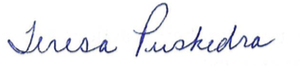 Teresa Puskedra